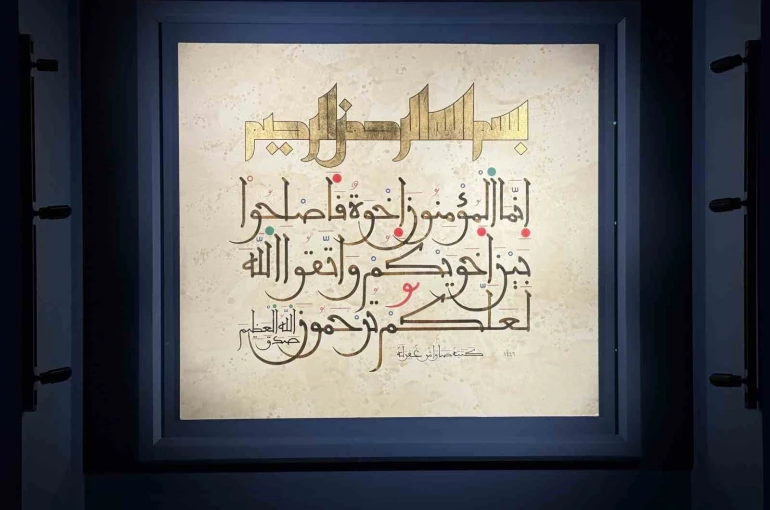 بسم الله الرحمن الرحيم
إِنَّمَا الْمُؤْمِنُونَ إِخْوَةٌ فَأَصْلِحُوا
بَيْنَ أَخَوَيْكُمْ وَاتَّقُوا اللَّهَ
لَعَلَّكُمْ تُرْحَمُونَ صدق الله العظيم
كتبه صاواش غفر له ١٤٤٦